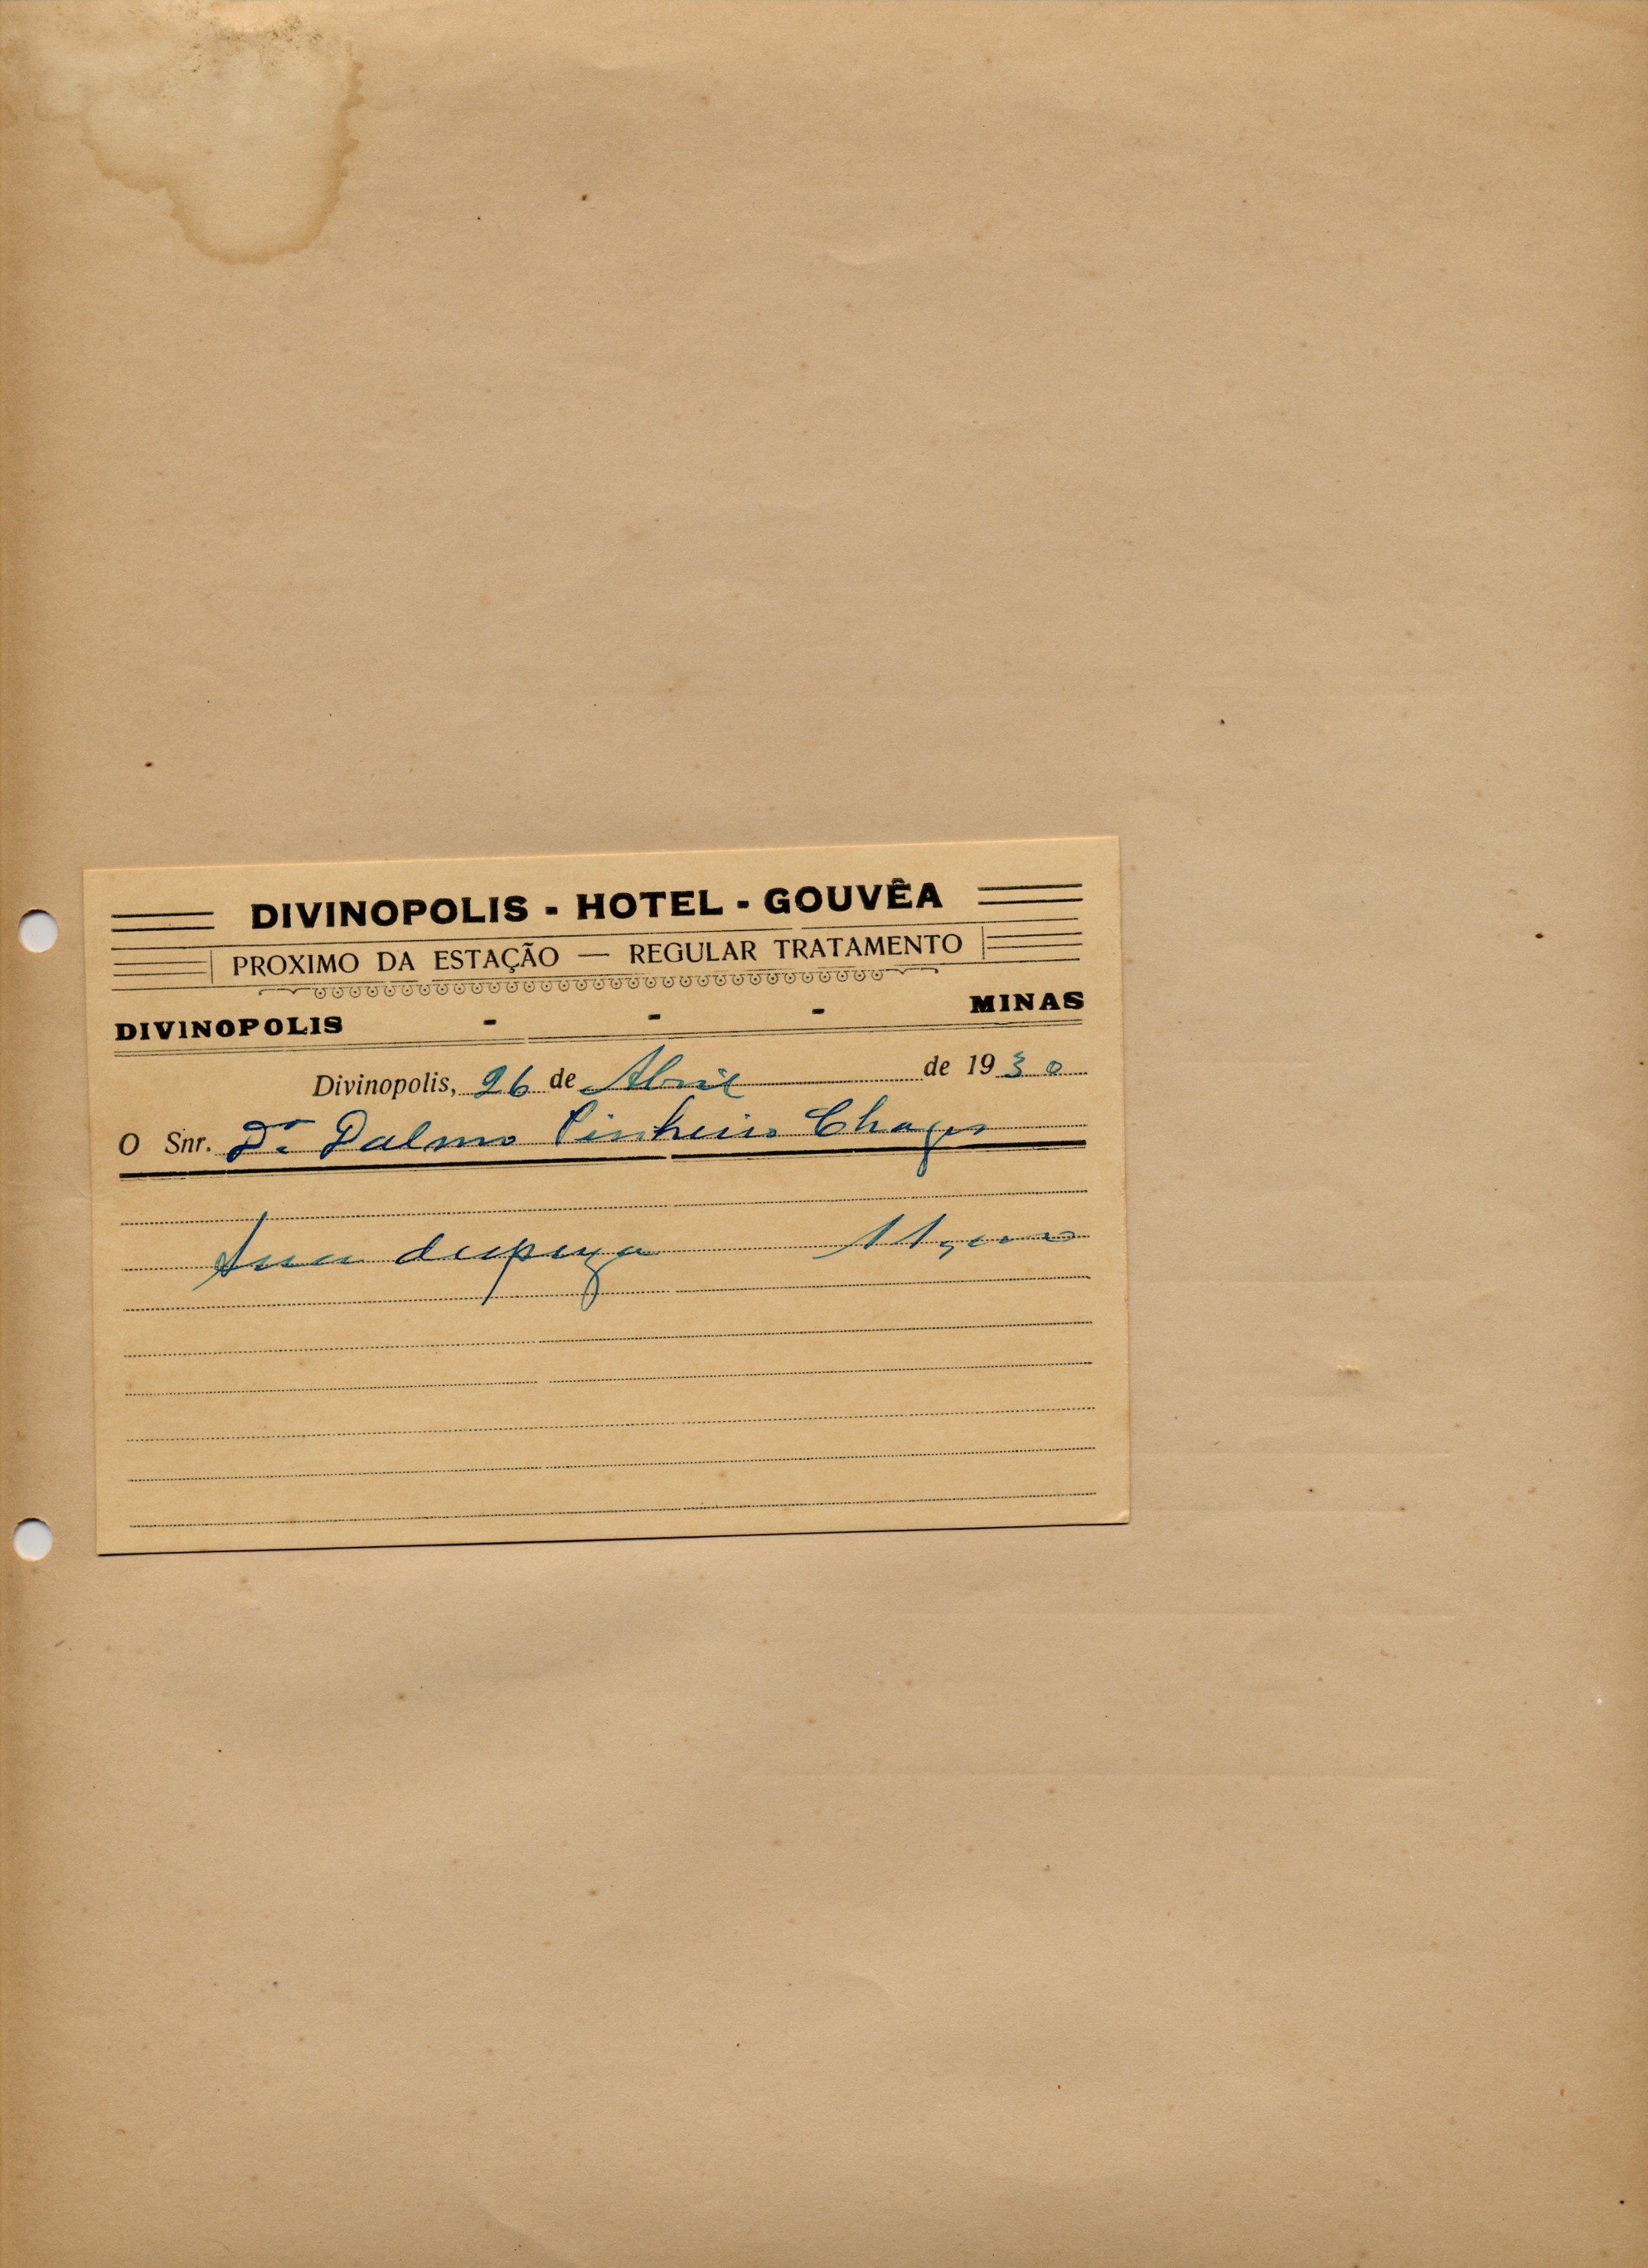 DIVINOPOLIS - HOTEL - GOUVÊA
PROXIMO DA ESTAÇÃO — REGULAR TRATAMENTO
DIVINOPOLIS - - - MINAS
Divinopolis, 26 de Abril de 1930
O Snr. Dr. Dalmo Pinheiro Chagas
Sua despeza 11,000